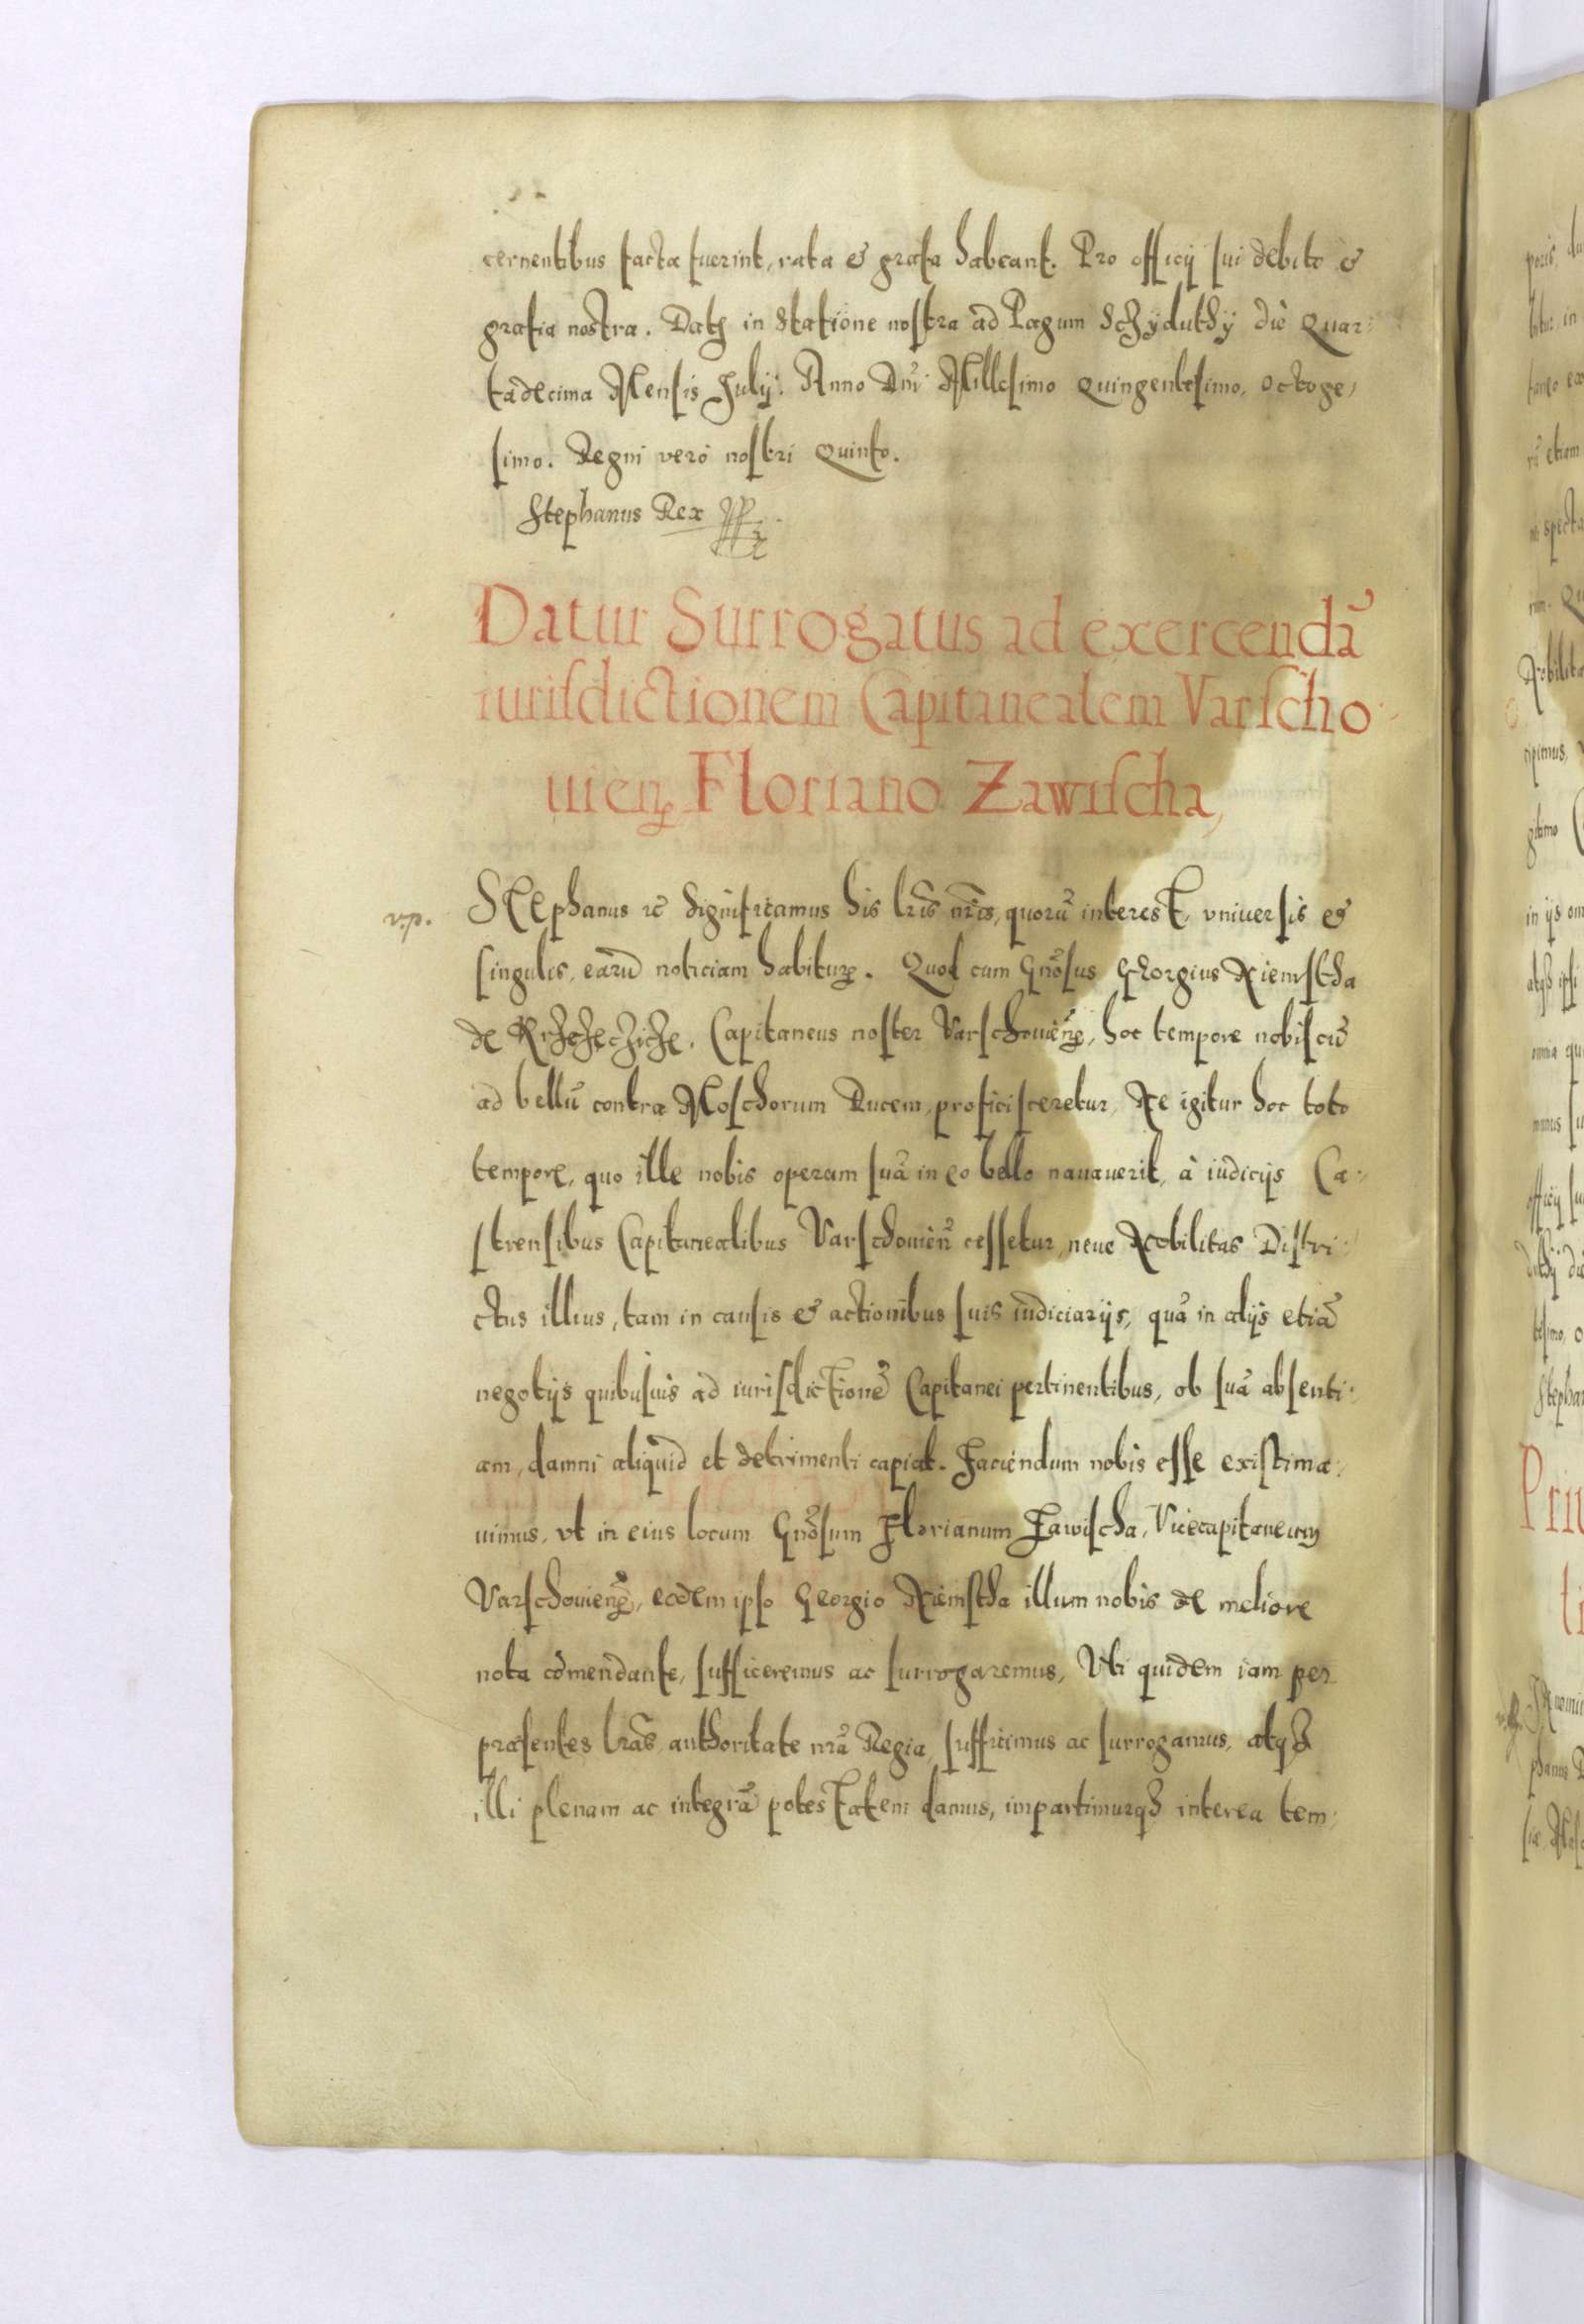 cernentibus facta fuerint, rata & grata habeant. Pro officij sui debito &
gratia nostra. Datę in Statione nostra ad Pagum Schÿduthÿ die Quar-
tadecima Mensis Julij. Anno Dnĩ Millesimo Quingentesimo, Octoge,
simo. Regni vero nostri Quinto.
Stephanus Rex
Datur Surrogatus ad exercendã
iurisdictionem Capitanealem Varscho-
uieñ Floriano Zawischa,
v.p.
Stephanus rc̃ Significamus his lrĩs nrĩs, quorũ interest, vniuersis &
singulis, earũ noticiam habiturę. Quod cum Gnõsus Georgius Niemstha
de Krzcżeczicże, Capitaneus noster Varschouieñ, hoc tempore nobiscũ
ad bellũ contra Moschorum Ducem, proficisceretur, Ne igitur hoc toto
tempore, quo ille nobis operam suã in eo bello nauauerit, à iudicijs Ca-
strensibus Capitanealibus Varschouieñ cessetur, neue Nobilitas Distri-
ctus illius, tam in causis & actionibus suis iudiciarijs, quã in alijs etiã
negotijs quibusuis ad iurisdictionẽ Capitanei pertinentibus, ob suã absenti-
am, damni aliquid et detrimenti capiat. Faciendum nobis esse existima-
uimus, vt in eius locum Gnõsum Florianum Zawischa, Vicecapitaneum
Varschouieñ, eodem ipso Georgio Niemstha illum nobis de meliore
nota cõmendante, sufficeremus ac surrogaremus, Vti quidem iam per
præsentes lrãs authoritate nrã Regia, sufficimus ac surrogamus, atqꝫ
illi plenam ac integrã potestatem damus, impartimurqꝫ interea tem-